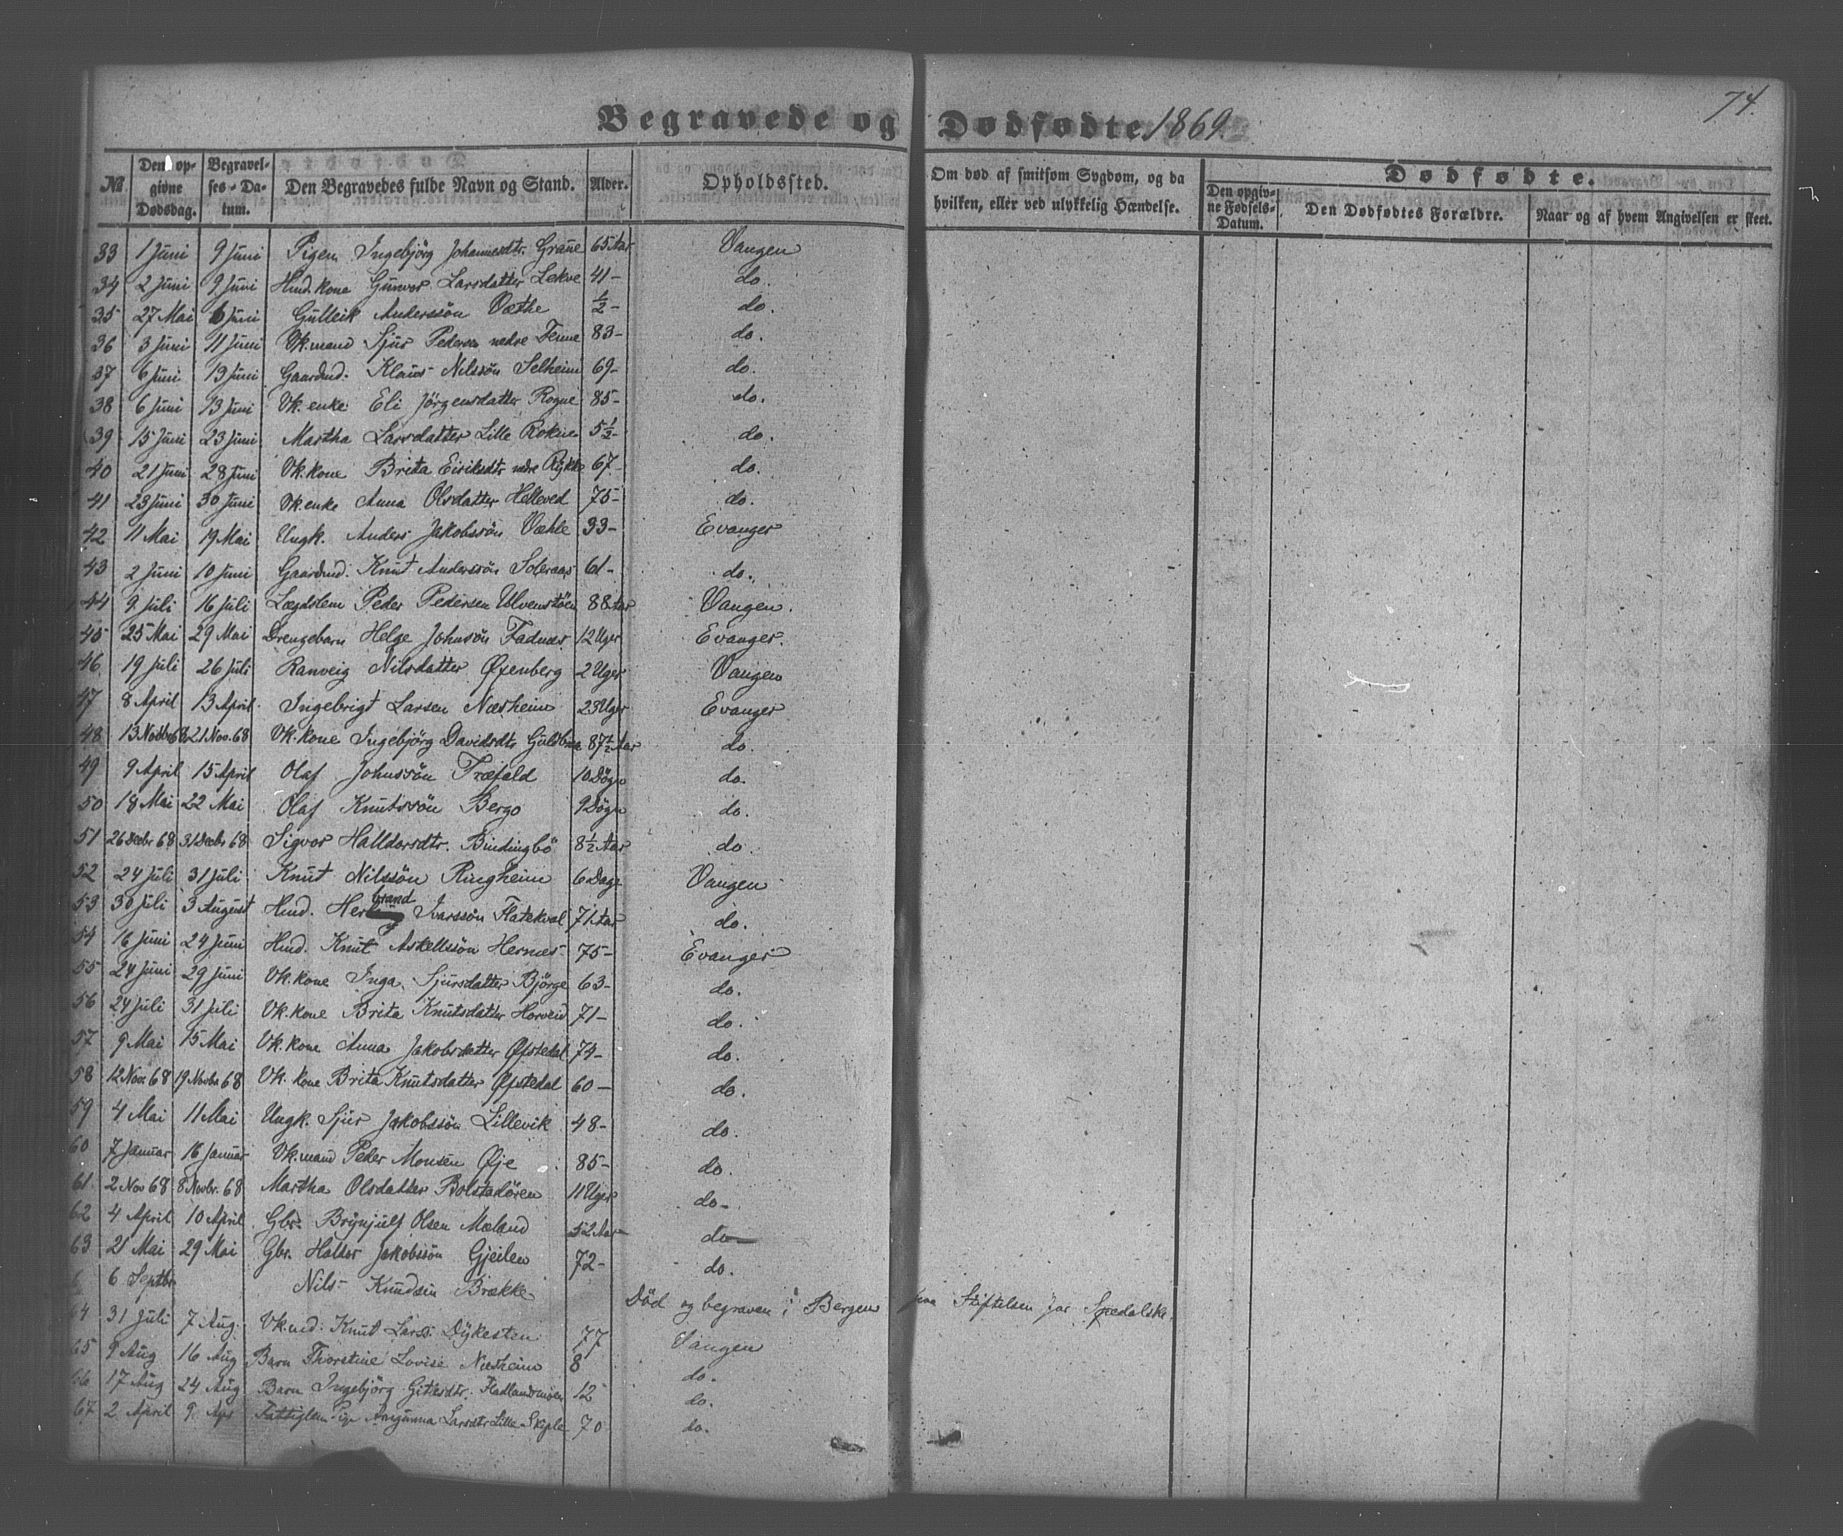 74.
Begravede og Dødfødte 1869
№ Den opgivne Dødsdag. Begravelses-Datum. Den Begravedes fulde Navn og Stand. Alder. Opholdssted. Om død af smitsom Sygdom, og da hvilken, eller ved ulykkelig Hændelse. Dødfødte. Den opgivne Fødsels-Datum. Den Dødfødtes Forældre. Naar og af hvem Angivelsen er skeet.
33 1 Juni 9 Juni Pigen Ingebjörg Johannesdtr. Graue 65 Aar Vangen
34 2 Juni 9 Juni Hmd. kone Gunvor Larsdatter Lekve 41- do.
35 27 Mai 6 Juni Gulleik Anderssön Væthe ½- do.
36 3 Juni 11 Juni Vk.mand Sjur Pedersen nedre Tenne 83- do.
37 6 Juni 13 Juni Gaardmd. Klaus Nilssön Selheim 69- do.
38 6 Juni 13 Juni Vk. enke Eli Jörgensdatter Rogne 85- do.
39 15 Juni 23 Juni Martha Larsdatter Lille Rokne 5½- do.
40 21 Juni 28 Juni Vk. kone Brita Eiriksdtr nedre Rykke 67- do.
41 23 Juni 30 Juni Vk. enke Anna Olsdatter Helleved 75- do.
42 11 Mai 19 Mai Ungk. Anders Jakobssön Væhle 33- Evanger
43 2 Juni 10 Juni Gaardmd. Knut Anderssön Soleraas 61- do.
44 9 Juli 16 Juli Lægdslem Peder Pedersen Ulvenstöen 88 Aar Vangen.
45 25 Mai 29 Mai Drengebarn Helge Johnsön Fadnes 12 Uger Evanger.
46 19 Juli 26 Juli Ranveig Nilsdatter Øxenberg 2 Uger Vangen
47 8 April 13 April Ingebrigt Larsen Næsheim 23 Uger Evanger
48 13 Novbr 68 21 Nov. 68 Vk. kone Ingebjörg Davidsdtr 87½ Aar do.
49 9 April 15 April Olaf Johnssön Træfald 10 Dögn do.
50 18 Mai 22 Mai Olaf Knutssön Bergo 9 Dögn do.
51 26 Decbr 68 31 Decbr 68 Sigvor Halldorsdtr. Bindingbö 8½ Aar do.
52 24 Juli 31 Juli Knut Nilssön Ringheim 6 Dage Vangen
53 30 Juli 3 August Hmd. Herbrand Ivarssön Flatekval 71 Aar do.
54 16 Juni 24 Juni Hmd. Knut Askellssön Hernes 75- Evanger
55 24 Juni 29 Juni Vk. kone Inga Sjursdatter Björge 63- do.
56 24 Juli 31 Juli Vk. kone Brita Knutsdatter Horveid 71- do.
57 9 Mai 15 Mai Vk. kone Anna Jakobsdatter Øfstedal 74- do.
58 12 Nov. 68 19 Novbr 68 Vk. kone Brita Knutsdatter Øfstedal 60- do.
59 4 Mai 11 Mai Ungk. Sjur Jakobssön Lillevik 48- do.
60 7 Januar 16 Januar Vk. mand Peder Monsen Øje 85- do.
61 2 Nov 68 8 Novbr. 68 Martha Olsdatter Bolstadören 11 Uger do-
62 4 April 10 April Gbr. Brynjulf Olsen Mæland 52 Aar do
63 21 Mai 29 Mai Gbr. Jakobssön Gjeilen 72- do.
6 Septbr Nils Knudsen Brække Död og begraven i Bergen fra Stiftelsen for Spedalske.
64 31 Juli 7 Aug. Vk.md. Knut Larss. Dykesten 77 Vangen
65 9 Aug 16 Aug Barn Thorstine Lovise Næsheim 8 do.
66 17 Aug 24 Aug Barn Ingebjörg Gitlesdtr. Flatlandsmoen 12 do.
67 2 April 9 Apr Fattiglem Pige Larsdtr Lille Skiple 70 do.